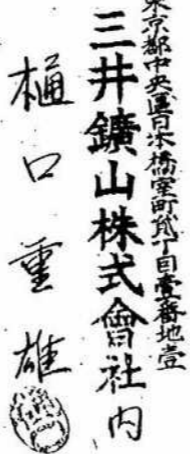 東京都中央區日本橋室町貳丁目壹番地壹
三井鑛山株式會社内
樋口重雄